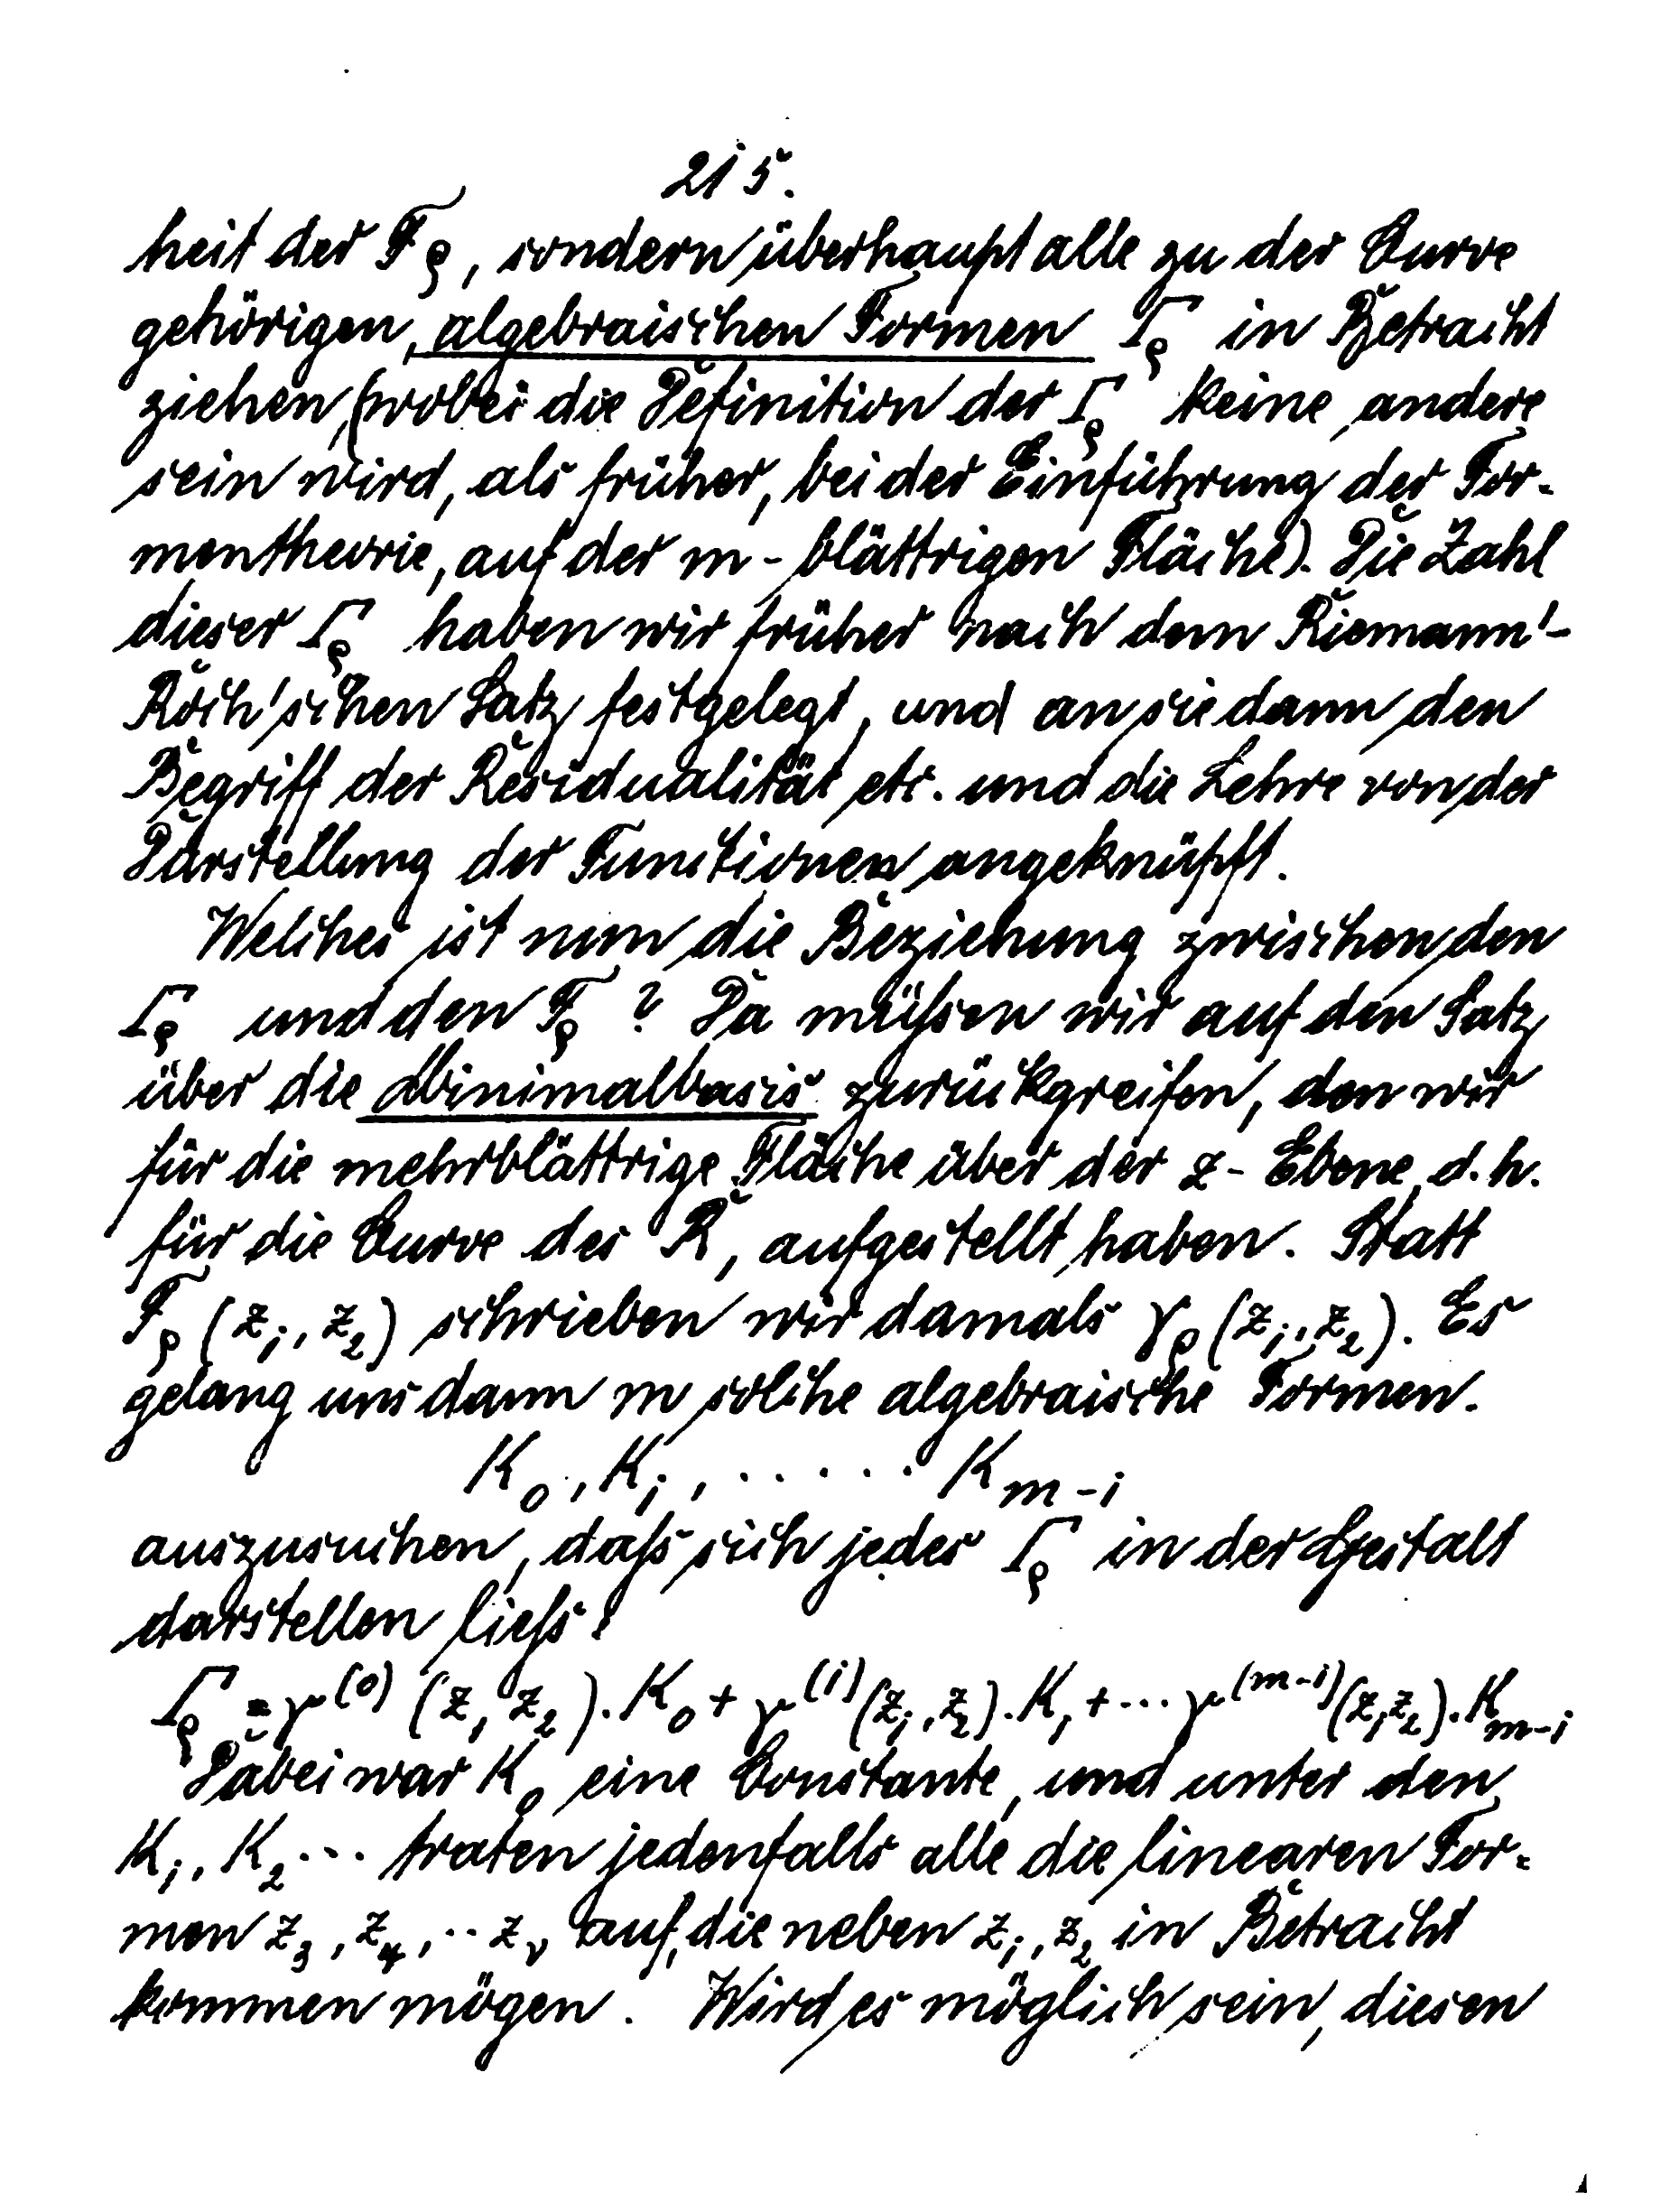 215.
heit der F_ρ, sondern überhaupt alle zu der Curve
gehörigen, algebraischen Formen Γ_ρ in Betracht
ziehen, (wobei die Definition der Γ_ρ keine andere
sein wird, als früher, bei der Einführung der For-
mentheorie, auf der m-blättrigen Fläche). Die Zahl
dieser Γ_ρ haben wir früher nach dem Riemann'-
Roch'schen Satz festgelegt, und an sie dann den
Begriff der Residualität etc. und die Lehre von der
Darstellung der Functionen angeknüpft.
Welches ist nun die Beziehung zwischen den
Γ_ρ und den F_ρ? Da müssen wir auf den Satz
über die Minimalbasis zurückgreifen, den wir
für die mehrblättrige Fläche über der z-Ebene, d. h.
für die Curve des R, aufgestellt haben. Statt
F_ρ (z_1, z_2) schrieben wir damals γ_ρ (z_1, z_2). Es
gelang uns dann m solche algebraische Formen.
K_0, K_1, ..... K_{m-1}
auszusuchen, dass sich jedes Γ_ρ in der Gestalt
darstellen liess:
Γ_ρ = γ^{(0)} (z_1 z_2). K_0 + γ^{(1)} (z_1, z_2). K_1 + ... γ^{(m-1)} (z_1 z_2). K_{m-1}
Dabei war K_0 eine Constante, und unter den
K_1, K_2 ... traten jedenfalls alle die linearen For-
men z_3, z_4, .. z_ν auf, die neben z_1, z_2 in Betracht
kommen mögen. Wird es möglich sein, diesen